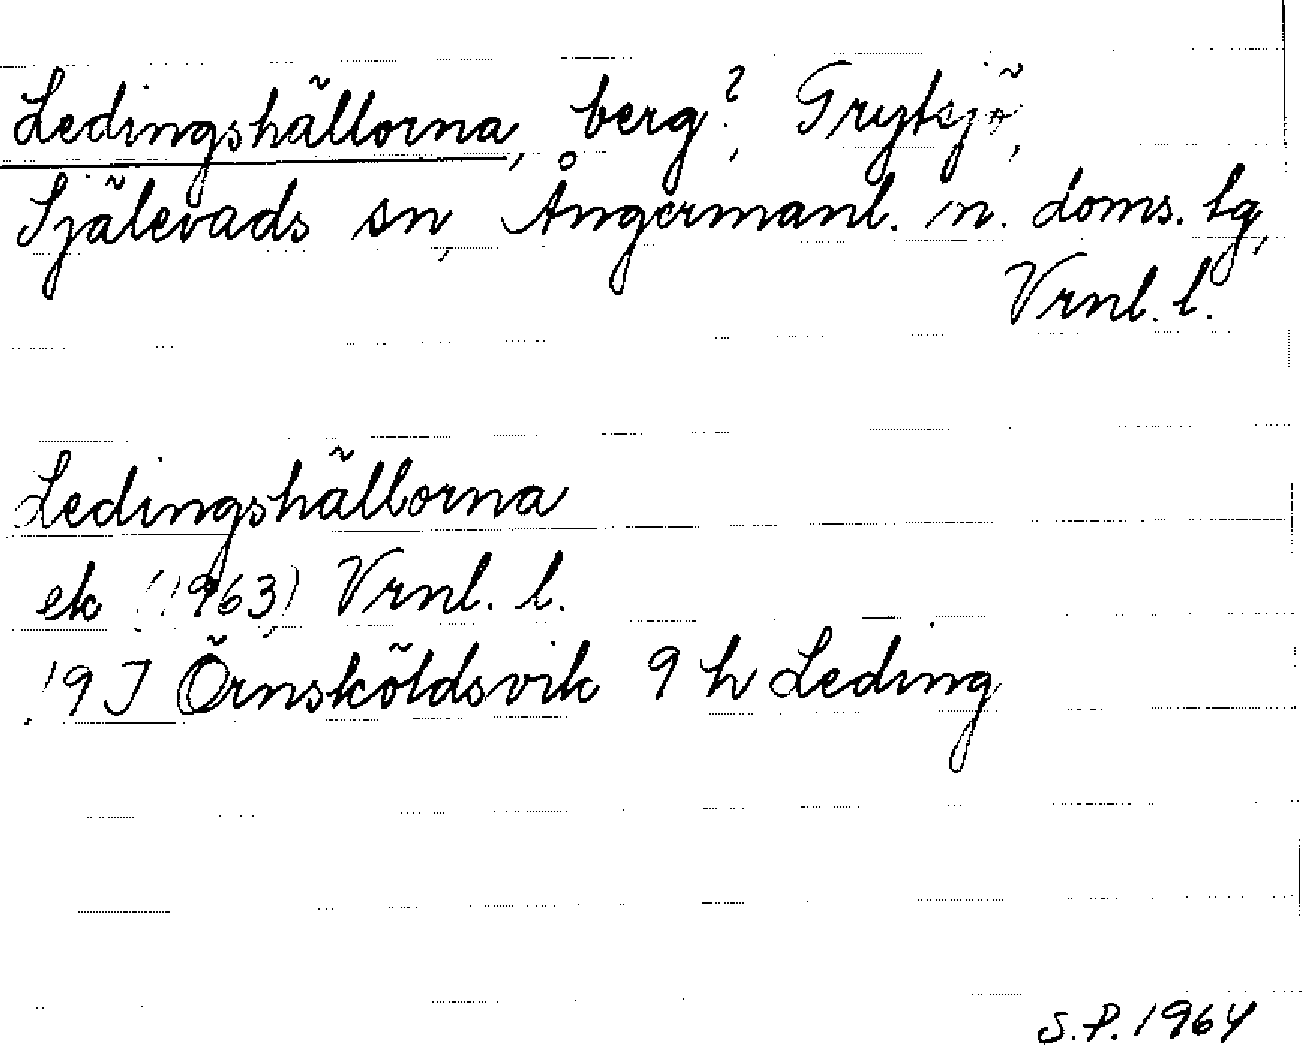 Ledingshällorna, berg?, Grytsjö,
Själevads sn, Ångermanl. n. doms. lg,
Vrnl. l.
Ledingshällorna
ek (1963) Vrnl. l.
19 J Örnsköldsvik 9 h Leding
S.P. 1964